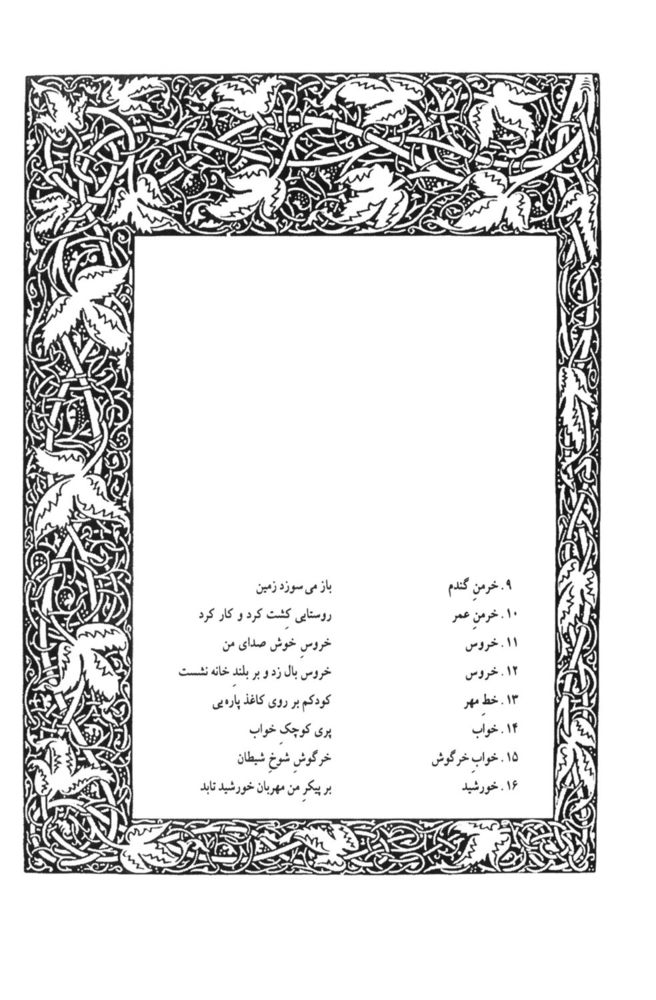 ۹. خرمنِ گندم باز می سوزد زمین
۱۰. خرمنِ عمر روستایی کِشت کرد و کار کرد
۱۱. خروس خروسِ خوش صدای من
۱۲. خروس خروس بال زد و بر بلندِ خانه نشست
۱۳. خطِ مهر کودکم بر روی کاغذ پاره یی
۱۴. خواب پری کوچکِ خواب
۱۵. خوابِ خرگوش خرگوشِ شوخِ شیطان
۱۶. خورشید بر پیکرِ من مهربان خورشید تابد